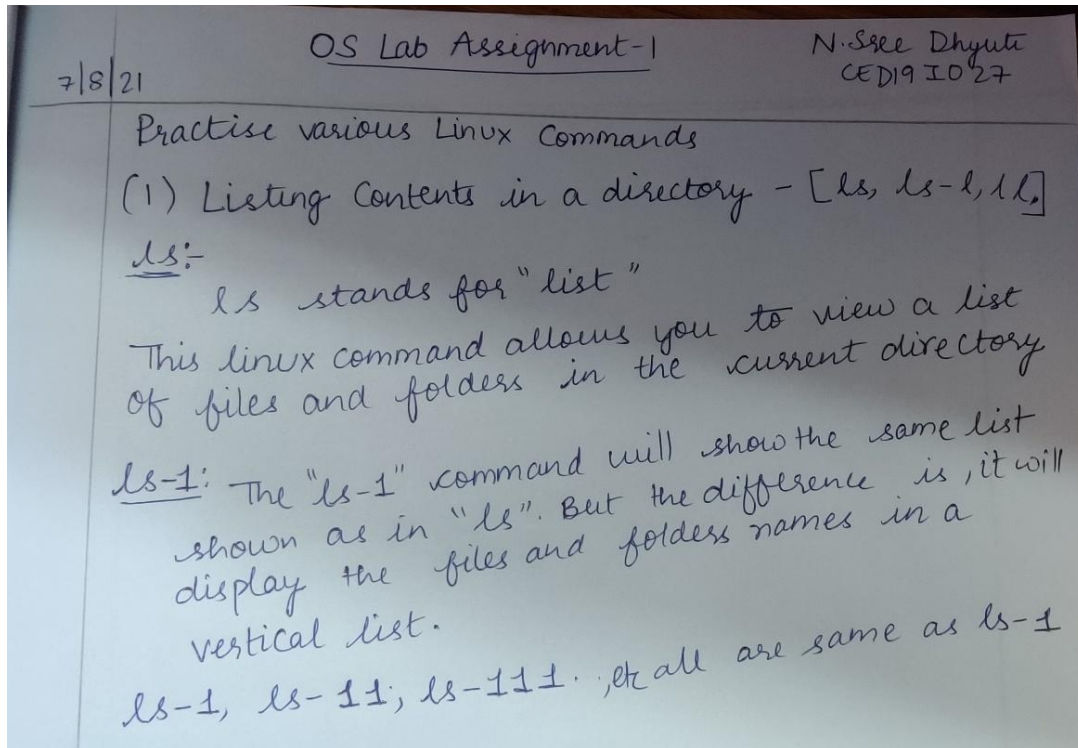 OS Lab Assignment-1
N. Sree Dhyuti
CED19I027
7/8/21
Practise various Linux Commands
(1) Listing Contents in a directory - [ls, ls-l, ll.]
ls:-
ls stands for "list"
This linux command allows you to view a list
of files and folders in the current directory
ls-1: The "ls-1" command will show the same list
shown as in "ls". But the difference is, it will
display the files and folders names in a
vertical list.
ls-1, ls-11, ls-111. , etc all are same as ls-1